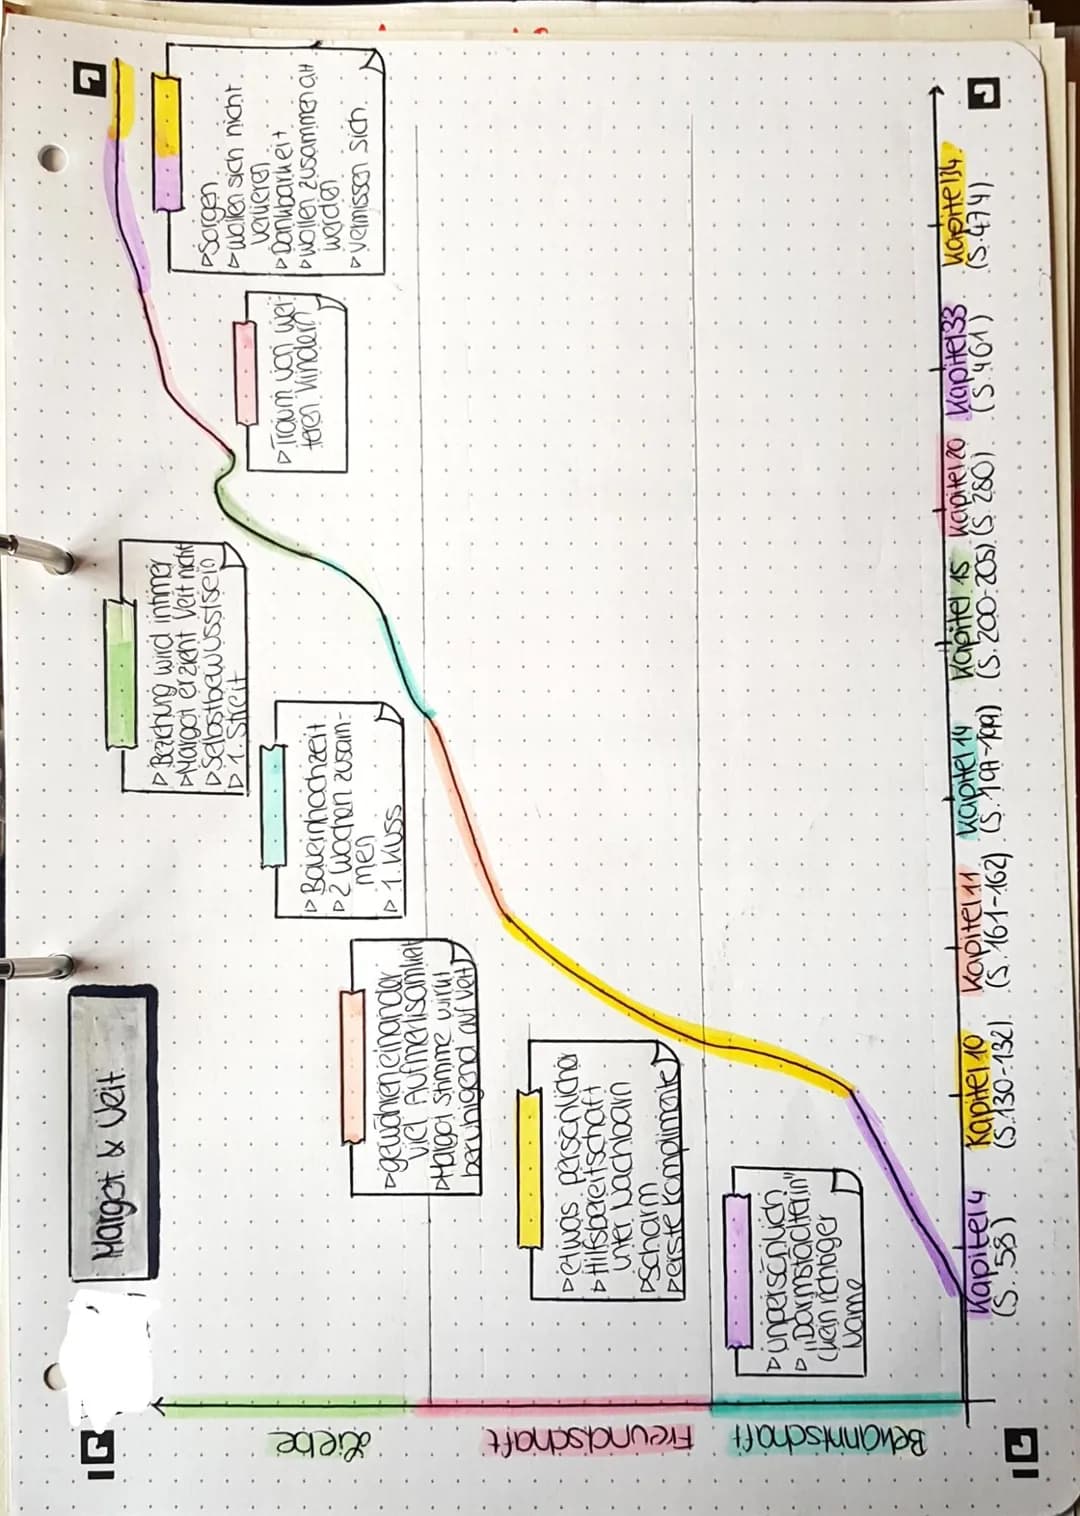 Margot & Veit
Liebe
Freundschaft
Bekanntschaft
▹ unpersönlich
▹ "Darmstädterin"
(kein richtiger
Name
▹ etwas persönlicher
▹ Hilfsbereitschaft
unter Nachbarn
▹ Scharm
▹ erste Komplimente
▹ gewöhnen einander
▹ viel Aufmerksamkeit
▹ Margot stimme wirkt
beruhigend auf Veit
▹ Bauernhochzeit
▹ 2 Wochen zusam-
men
▹ 1. Kuss
▹ Beziehung wird intimer
▹ Margot erzieht Veit nicht
▹ Selbstbewusstsein
▹ 1. Streit
▹ Traum von wei-
teren Kindern
▹ Sorgen
▹ wollen sich nicht
verlieren
▹ Dankbarkeit
▹ wollen zusammen alt
werden
▹ vermissen sich
Kapitel 4
(S. 58)
Kapitel 10
(S. 130-132)
Kapitel 11
(S. 161-162)
Kapitel 14
(S. 197-199)
Kapitel 15
(S. 200-205)
Kapitel 20
(S. 280)
Kapitel 33
(S. 461)
Kapitel 34
(S. 474)